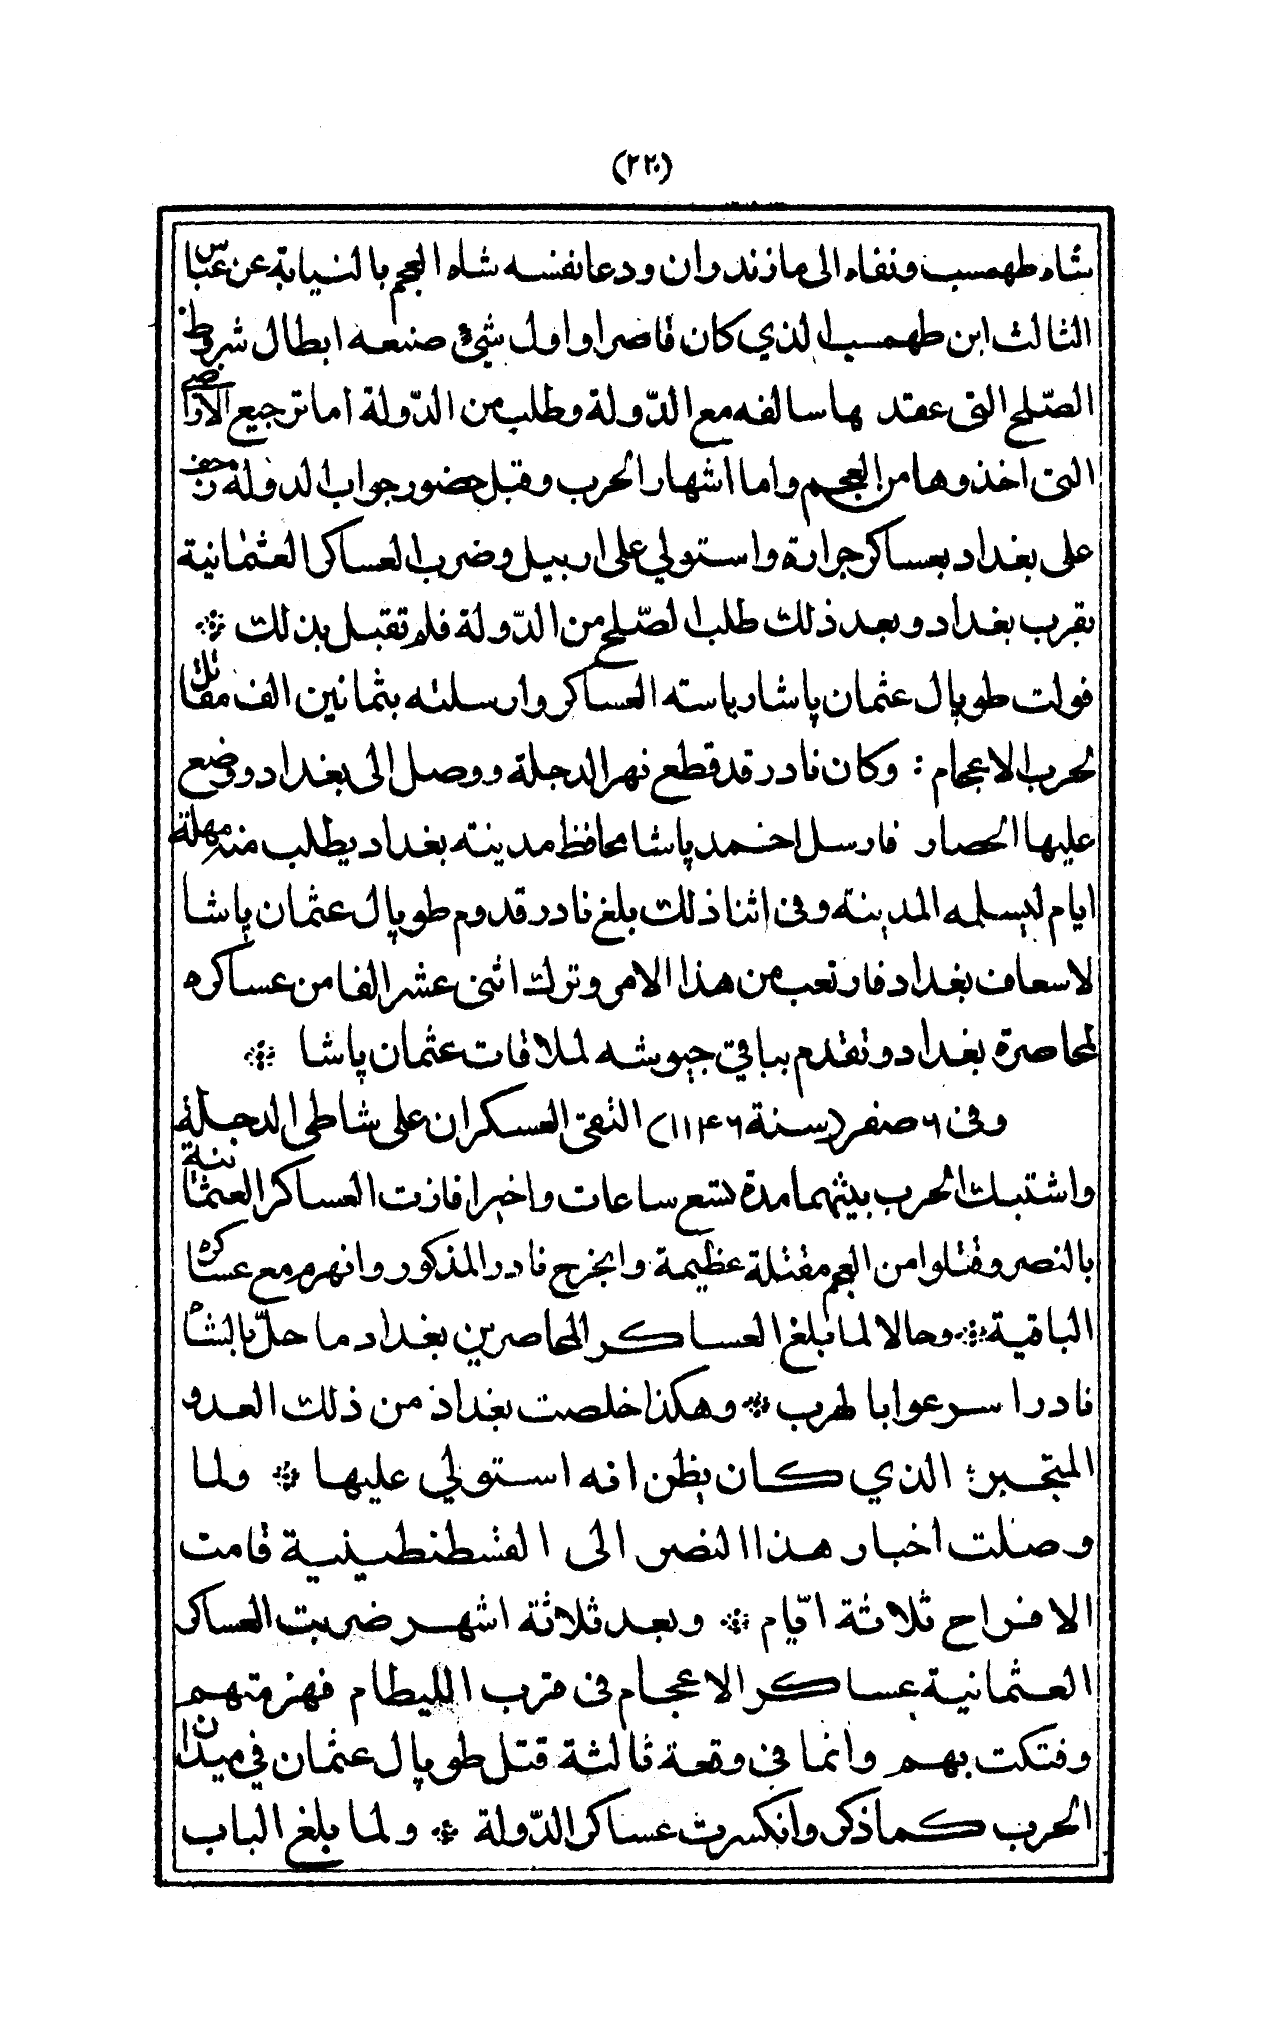 (٢٢٠)
شاه طهمسب ونفاه الى مازندران ودعا نفسه شاه العجم بالنيابة عن عباس
الثالث ابن طهمسب الذي كان قاصرا واول شيء صنعه ابطال شروط
الصّلح التى عقد بها سالفه مع الدّولة وطلب من الدّولة اما ترجيع الاراضى
التى اخذوها من العجم واما اشهار الحرب وقبل حضور جواب الدولة زحف
على بغداد بعساكر جرارة واستولي على اربيل وضرب العساكر العثمانية
بقرب بغداد وبعد ذلك طلب الصّلح من الدّولة فلم تقبل بذلك ۞
فولت طوپال عثمان پاشا رياسته العساكر وارسلته بثمانين الف مقاتل
لحرب الاعجام : وكان نادر قد قطع نهر الدجلة ووصل الى بغداد ووضع
عليها الحصار فارسل احمد پاشا محافظ مدينته بغداد يطلب منه مهلة
ايام ليسلمه المدينة وفى اثنا ذلك بلغ نادر قدوم طوپال عثمان پاشا
لاسعاف بغداد فارتعب من هذا الامر وترك اثنى عشر الفا من عساكره
لمحاصرة بغداد وتقدم بباقي جيوشه لملاقات عثمان پاشا ۞
وفى ٦ صفر (سنة ١١٤٦) التقى العسكران على شاطى الدجلة
واشتبك الحرب بينهما مدة تسع ساعات واخيرا فازت العساكر العثمانية
بالنصر وقتلوا من العجم مقتلة عظيمة وانجرح نادر المذكور وانهزم مع عساكره
الباقية ۞ وحالا لما بلغ العساكر المحاصرين بغداد ما حلّ بالشاه
نادرا سرعوا با لهرب ۞ وهكذا خلصت بغداد من ذلك العدو
المتجبر؛ الذي كان يظن انه استولي عليها ۞ ولما
وصلت اخبار هذا النصر الى القسطنطينية قامت
الافراح ثلاثة ايّام ۞ وبعد ثلاثة اشهر ضربت العساكر
العثمانية عساكر الاعجام فى قرب الليطام فهزمتهم
وفتكت بهم وانما فى وقعة ثالثة قتل طوپال عثمان في ميدان
الحرب كما ذكر وانكسرت عساكر الدّولة ۞ ولما بلغ الباب